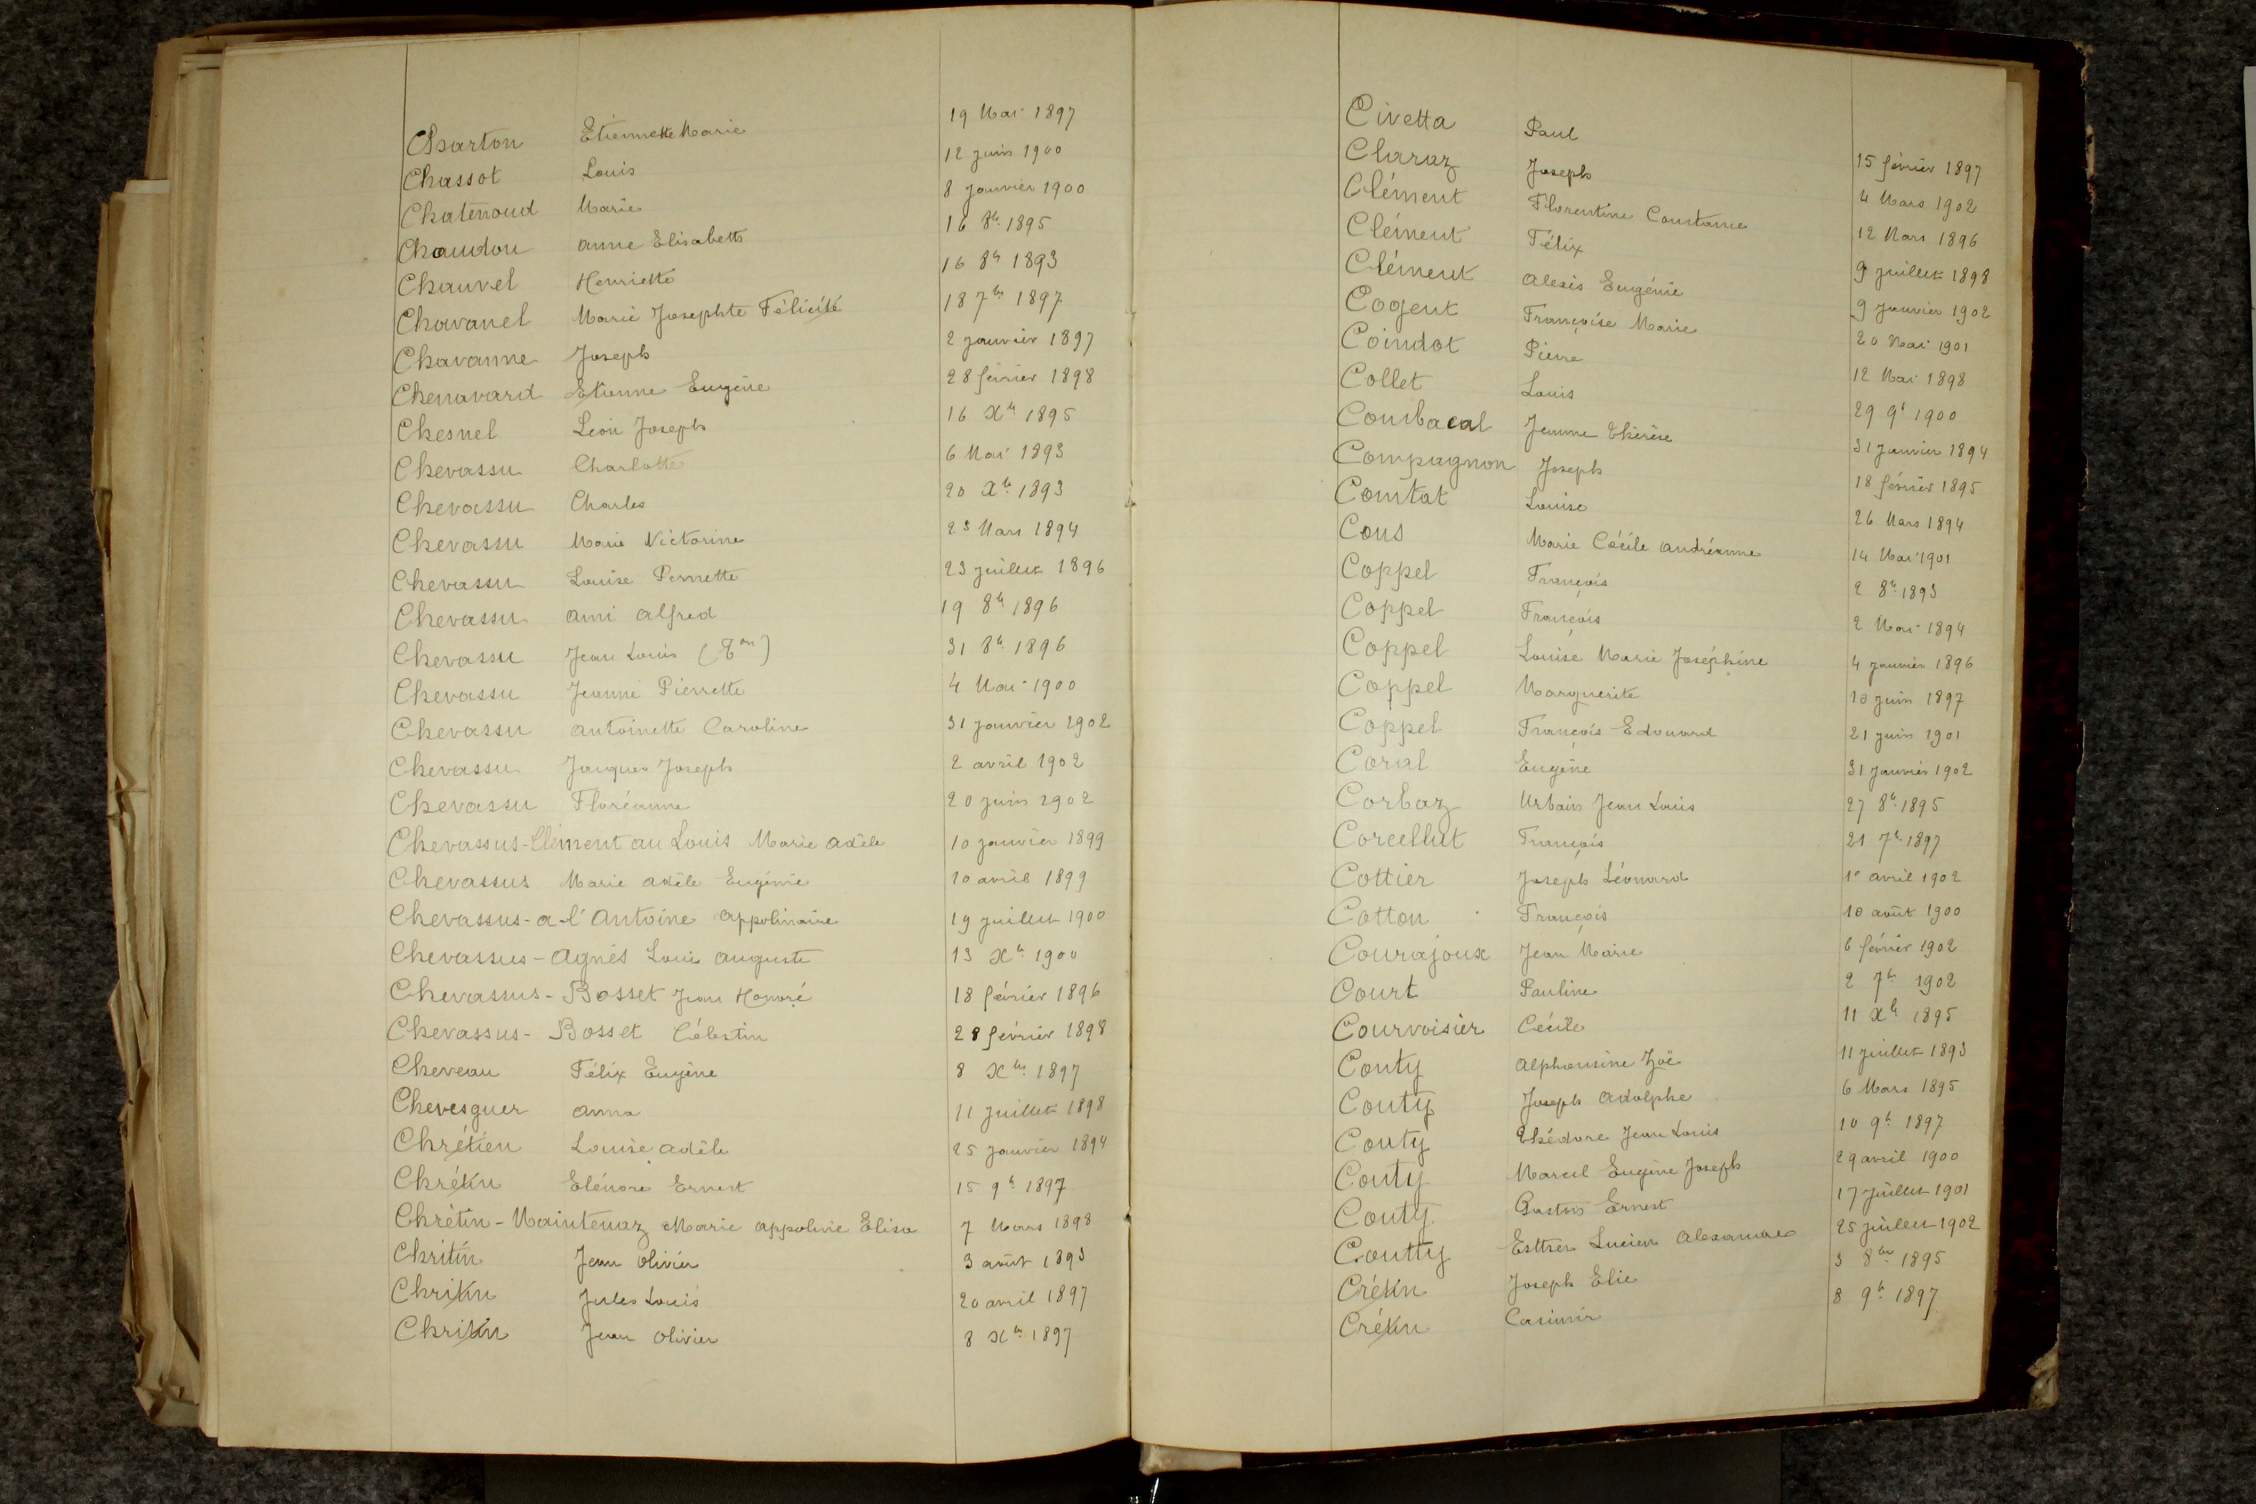 Charton Etiennette Marie 19 Mai 1897
Chassot Louis 12 juin 1900
Chatenoud Marie 8 janvier 1900
Chaudon Anne Elisabeth 16 8bre 1895
Chauvel Henriette 16 8bre 1893
Chavanel Marie Josephte Félicité 18 7bre 1897
Chavanne Joseph 2 janvier 1897
Chenavard Etienne Eugène 28 février 1898
Chesnel Léon Joseph 16 Xbre 1895
Chevassu Charlotte 6 Mai 1893
Chevassu Charles 20 Xbre 1893
Chevassu Marie Victorine 23 Mars 1894
Chevassu Louise Perrette 23 juillet 1896
Chevassu Ami Alfred 19 8bre 1896
Chevassu Jean Louis 31 8bre 1896
Chevassu Jeanne Pierrette 4 Mai 1900
Chevassu Antoinette Caroline 31 janvier 1902
Chevassu Jacques Joseph 2 avril 1902
Chevassu Floréanne 20 juin 1902
Chevassus-Clément au Louis Marie Adèle 10 janvier 1899
Chevassus Marie Adèle Eugénie 10 avril 1899
Chevassus-a-l'Antoine Appolinaire 19 juillet 1900
Chevassus-Agnès Louis Auguste 13 Xbre 1900
Chevassus-Bosset Jean Honoré 18 février 1896
Chevassus-Bosset Célestin 28 février 1898
Cheveau Félix Eugène 8 Xbre 1897
Chevesguer Anna 11 juillet 1898
Chrétien Louise Adèle 25 janvier 1894
Chrétin Elénore Ernest 15 9bre 1897
Chrétin-Maintenaz Marie Appolinie Elisa 7 Mars 1898
Chritin Jean Olivier 3 août 1893
Chritin Jules Louis 20 avril 1897
Chritin Jean Olivier 8 Xbre 1897
Civetta Paul 15 février 1897
Claraz Joseph 4 Mars 1902
Clément Florentine Constance 12 Mars 1896
Clément Félix 9 juillet 1898
Clément Alexis Eugénie 9 janvier 1902
Cogent Françoise Marie 20 Mai 1901
Coindot Pierre 12 Mai 1898
Collet Louis 29 9bre 1900
Combacal Jeanne Thérèse 31 janvier 1894
Compagnon Joseph 18 février 1895
Comtat Louise 26 Mars 1894
Cons Marie Cécile Andréanne 14 Mai 1901
Coppel François 2 8bre 1893
Coppel François 2 Mai 1894
Coppel Louise Marie Joséphine 4 janvier 1896
Coppel Marguerite 10 juin 1897
Coppel François-Edouard 21 juin 1901
Coral Eugène 31 janvier 1902
Corbaz Urbain Jean Louis 27 8bre 1895
Corcellut François 21 7bre 1897
Cottier Joseph Léonard 1er avril 1902
Cotton François 10 août 1900
Courajoux Jean Marie 6 février 1902
Court Pauline 2 7bre 1902
Courvoisier Cécile 11 Xbre 1895
Couty Alphonsine Zoë 11 juillet 1893
Couty Joseph Adolphe 6 Mars 1895
Couty Théodore Jean Louis 10 9bre 1897
Couty Marcel Eugène Joseph 29 avril 1900
Couty Gaston Ernest 17 juillet 1901
Coutty Esther Lucien Alexandre 25 juillet 1902
Crétin Joseph Elie 3 8bre 1895
Crétin Casimir 8 9bre 1897